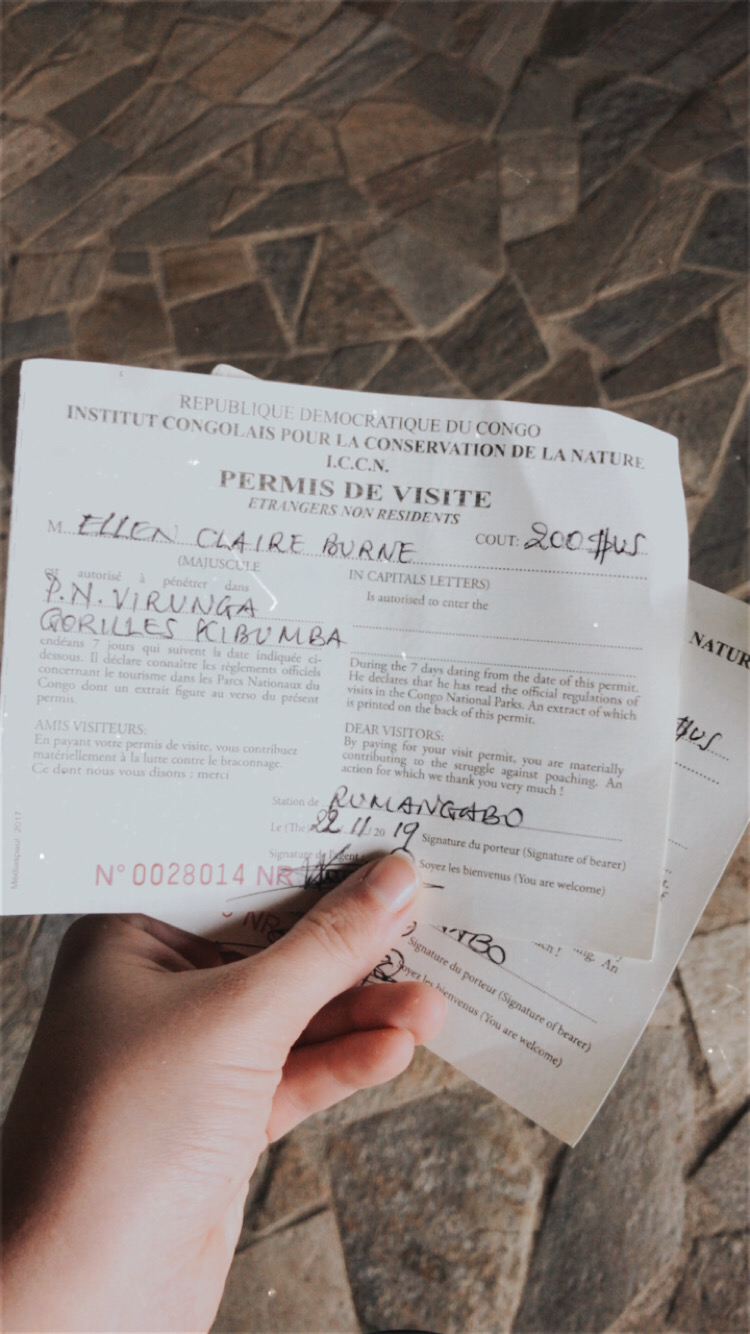 REPUBLIQUE DEMOCRATIQUE DU CONGO
INSTITUT CONGOLAIS POUR LA CONSERVATION DE LA NATURE
I.C.C.N.
PERMIS DE VISITE
ETRANGERS NON RESIDENTS
M. ELLEN CLAIRE BURNE COUT: 200 $US
(MAJUSCULE IN CAPITALS LETTERS)
est autorisé à pénétrer dans
P.N. VIRUNGA
GORILLES KIBUMBA
endéans 7 jours qui suivent la date indiquée ci-
dessous. Il déclare connaître les règlements officiels
concernant le tourisme dans les Parcs Nationaux du
Congo dont un extrait figure au verso du présent
permis.
Is autorised to enter the
During the 7 days dating from the date of this permit.
He declares that he has read the official regulations of
visits in the Congo National Parks. An extract of which
is printed on the back of this permit.
AMIS VISITEURS:
En payant votre permis de visite, vous contribuez
matériellement à la lutte contre le braconnage.
Ce dont nous vous disons : merci
DEAR VISITORS:
By paying for your visit permit, you are materially
contributing to the struggle against poaching. An
action for which we thank you very much !
Station de RUMANGABO
Le (The) 22 11 / 20 19 Signature du porteur (Signature of bearer)
Signature de l'agent Soyez les bienvenus (You are welcome)
N° 0028014 NR
2017
NATUR
$US
NR
BO
ch ! ing. An
Signature du porteur (Signature of bearer)
Soyez les bienvenus (You are welcome)